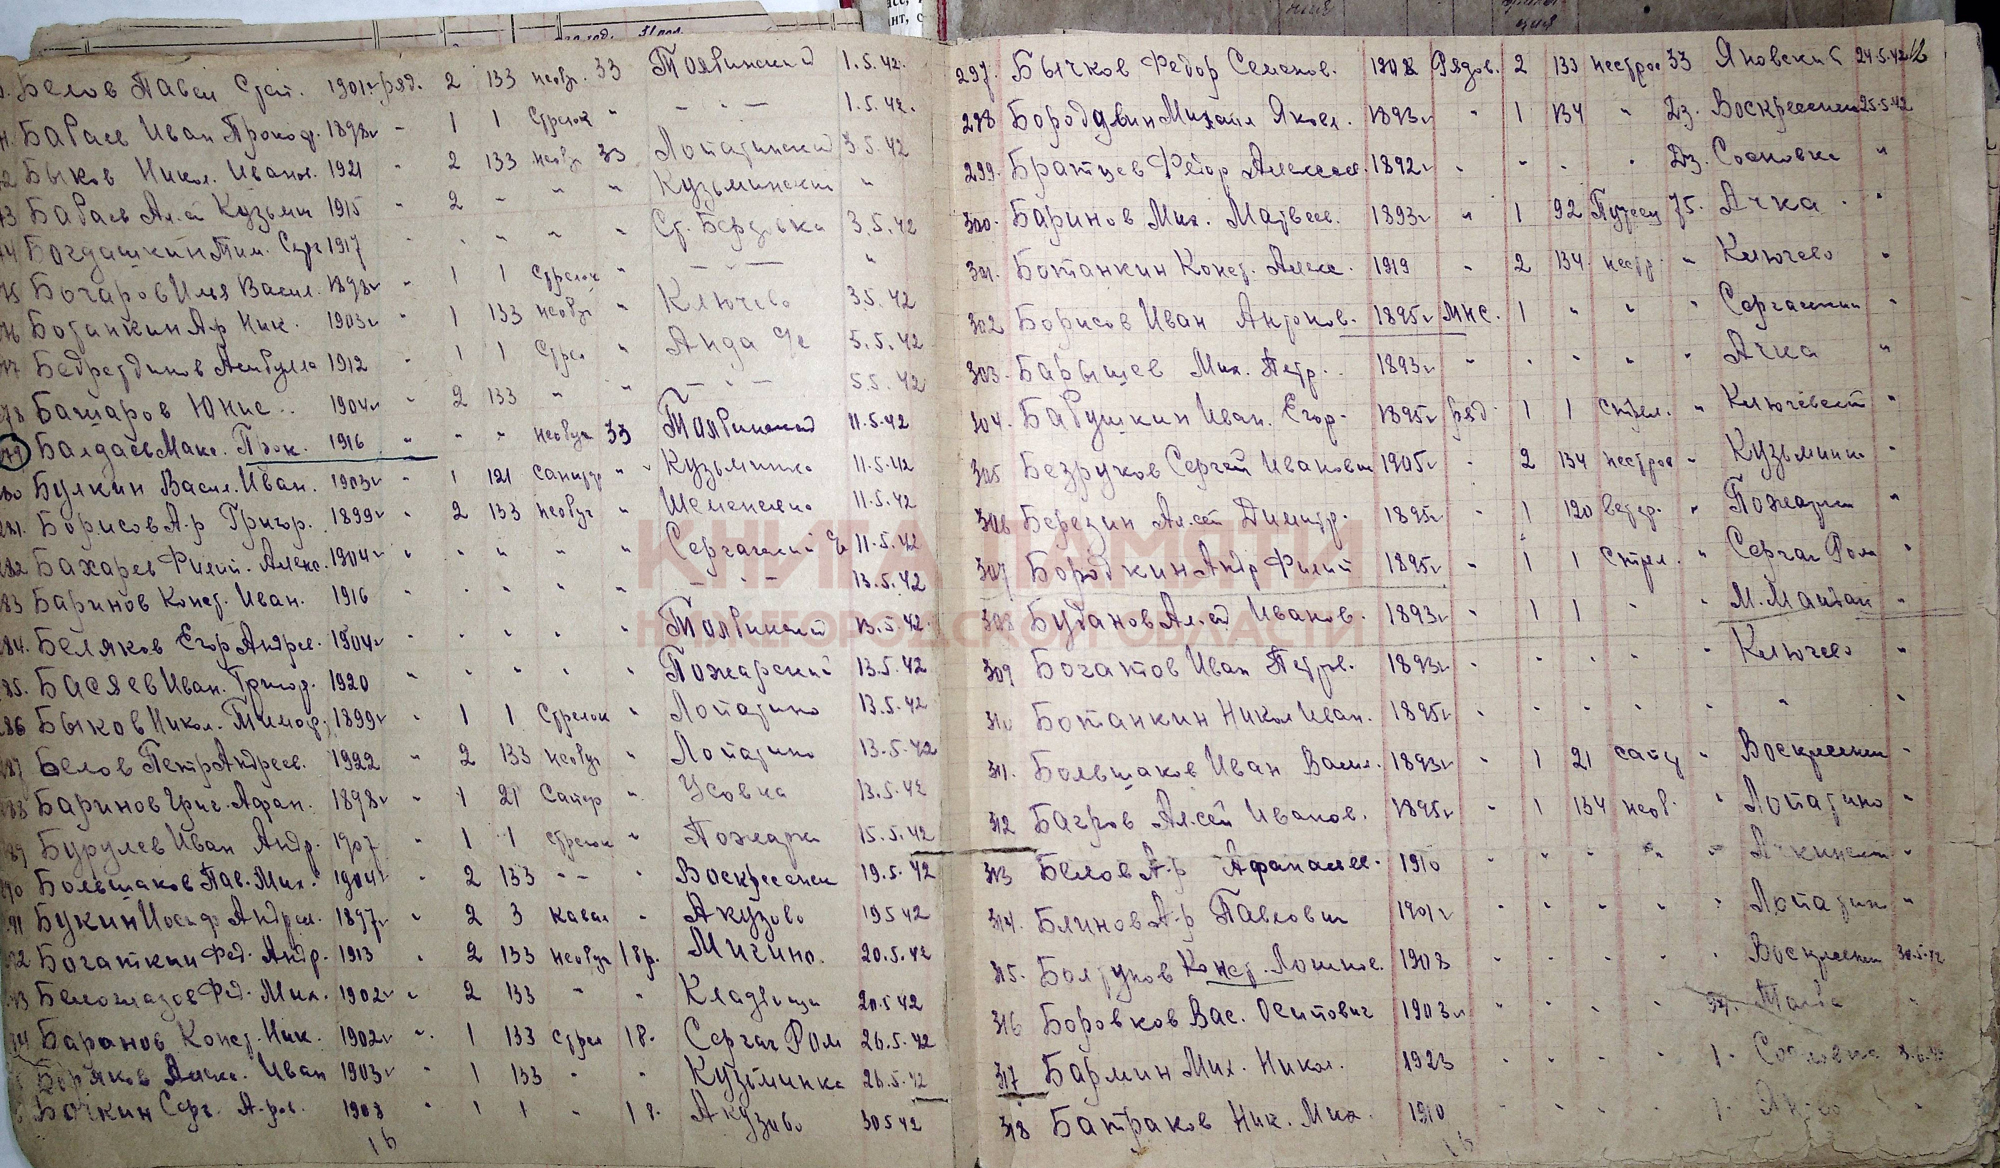 Белов Павел Степ. 1901г ряд. 2 133 необуч. 33 Толбинский 1.5.42.
Бабаев Иван Прокоф. 1898г " 1 1 Стрелок " — " — 1.5.42.
Быков Никол. Иванов. 1921 " 2 133 необуч 33 Лопатинский 3.5.42
Бабаев Ал.ей Кузьми 1915 " 2 " " " Кузьминский "
Богдашкин Тим. Серг 1917 " " " " Ст. Березовка 3.5.42
Бочаров Илья Васил. 1893г " 1 1 Стрелок " — " — "
Ботанкин Ал-р Ник. 1903г " 1 133 необуч " Ключево 3.5.42
Бедретдинов 1912 " 1 1 Стрел " Анда 5.5.42
278 Башаров Юнис.. 1904г " 2 133 " " — " — 5.5.42
279 Балдаев Макс. Прок. 1916 " " " необуч 33 Толбинский 11.5.42
280 Булкин Васил. Иван. 1903г " 1 121 санитар " Кузьминка 11.5.42
281. Борисов Ал-р Григор. 1899г " 2 133 необуч " 11.5.42
282 Бахарев Филип. Алекс. 1904г " " " " " Сергачский 11.5.42
283 Баринов Конст. Иван. 1916 " " " " " — " — 13.5.42
284. Беляков Егор Андреев. 1904г " " " " " Толбинский 13.5.42.
285. Басяев Иван. Григор. 1920 " " " " " Пожарский 13.5.42
286 Быков Никол. Тимоф. 1899г " 1 1 Стрелок " Лопатино 13.5.42
287 Белов Петр Андреев. 1922 " 2 133 необуч " Лопатино 13.5.42
288 Баринов Григ. Афан. 1898г " 1 21 Сапер " Усовка 13.5.42
289 Бурулев Иван Андр. 1907 " 1 1 стрелок " Пожарки 15.5.42
290 Большаков Пав. Мих. 1904г " 2 133 — " — " Воскресенск 19.5.42
291 Букин Иосиф Андреев. 1897г " 2 3 кавал " Акузово 19.5.42
292 Богаткин Фед. Андр. 1913 " 2 133 необуч 18р. Мигино. 20.5.42
293 Белоглазов Фед. Мих. 1902г " 2 133 " " Кладбищи 20.5.42
294 Баранов Конст. Ник. 1902г " 1 133 стрел 18. Сергач РОМ 26.5.42
Боряков Алекс. Иван 1903г " 1 133 " " Кузьминка 26.5.42
Бочкин Серг. 1908 " 1 1 " 18. Акузово 30.5.42
16
12
297. Бычков Федор Семенов. 1902 Рядов. 2 133 нестрое 33 Яновский 24.5.42
298 Бородавин Михаил Яковл. 1893г " 1 134 " Дз. Воскресенск 25.5.42
299. Братцев Федор Алексеев. 1892г " " " " Дз. Сосновка "
300. Баринов Мих. Матвеев. 1893г " 1 92 75. Ачка "
301. Ботанкин Конст. Алекс. 1919 " 2 134 нестр. " Ключево "
302 Борисов Иван Антонов. 1895г МНС. 1 " " " Сергачский "
303. Барышев Мих. Петр. 1893г " " " " " Ачка "
304. Бабушкин Иван. Егор. 1895г ряд. 1 1 стрел. " Ключевский "
305 Безруков Сергей Иванович 1905г " 2 134 нестров " Кузьминка "
306 Березин Ал.ей Димитр. 1895г " 1 120 ветер. " Пожарки "
307 Бородкин Андр Филип 1895г " 1 1 Стрел. " Сергач Ром "
308 Буданов Ал.ей Иванов. 1893г " 1 1 " " М. Майдан "
309 Богатов Иван Петров. 1893г " " " " " Ключево "
310 Ботанкин Никол Иван. 1895г " " " " " " "
311. Большаков Иван Васил. 1893г " 1 21 сапер " Воскресенск "
312 Багров Ал.сей Иванов. 1895г " 1 134 необ. " Лопатино "
313 Белов Ал-р Афанасьев. 1910 " " " " " Ачкинский "
314. Блинов Ал-р Павлович 1901г " " " " " Лопатино "
315. Болтунов Конст. 1908 " " " " " Воскресенск 30.5.42
316 Боровков Вас. Осипович 1903г " " " " "
317 Бармин Мих. Никол. 1923 " " " " 1. Сосновка
318 Батраков Ник. Мих. 1910 " " " " 1.
16
КНИГА ПАМЯТИ
НИЖЕГОРОДСКОЙ ОБЛАСТИ